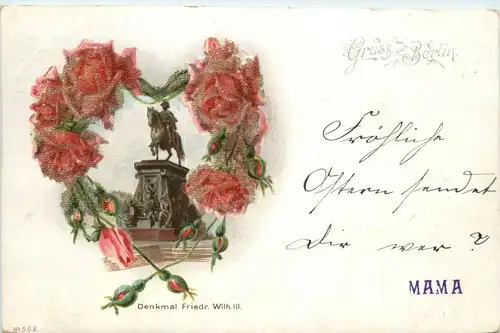 Gruss aus Berlin.
Fröhliche
Ostern sendet
Dir wer?
MAMA
Denkmal Friedr. Wilh. III.
№ 562